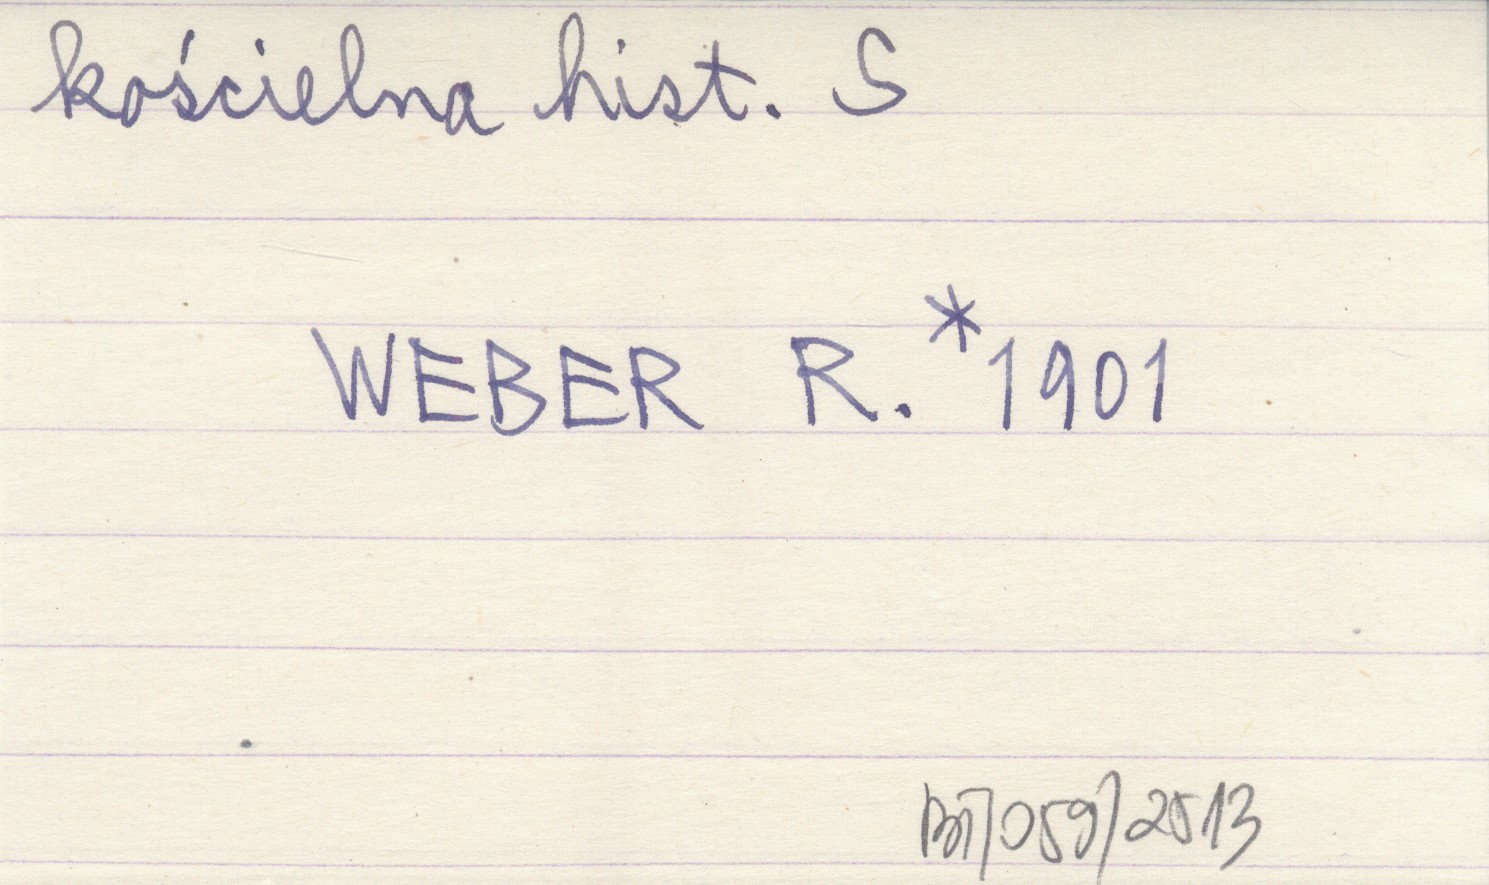 kościelna hist. S
WEBER R. *1901
BT/059/2513